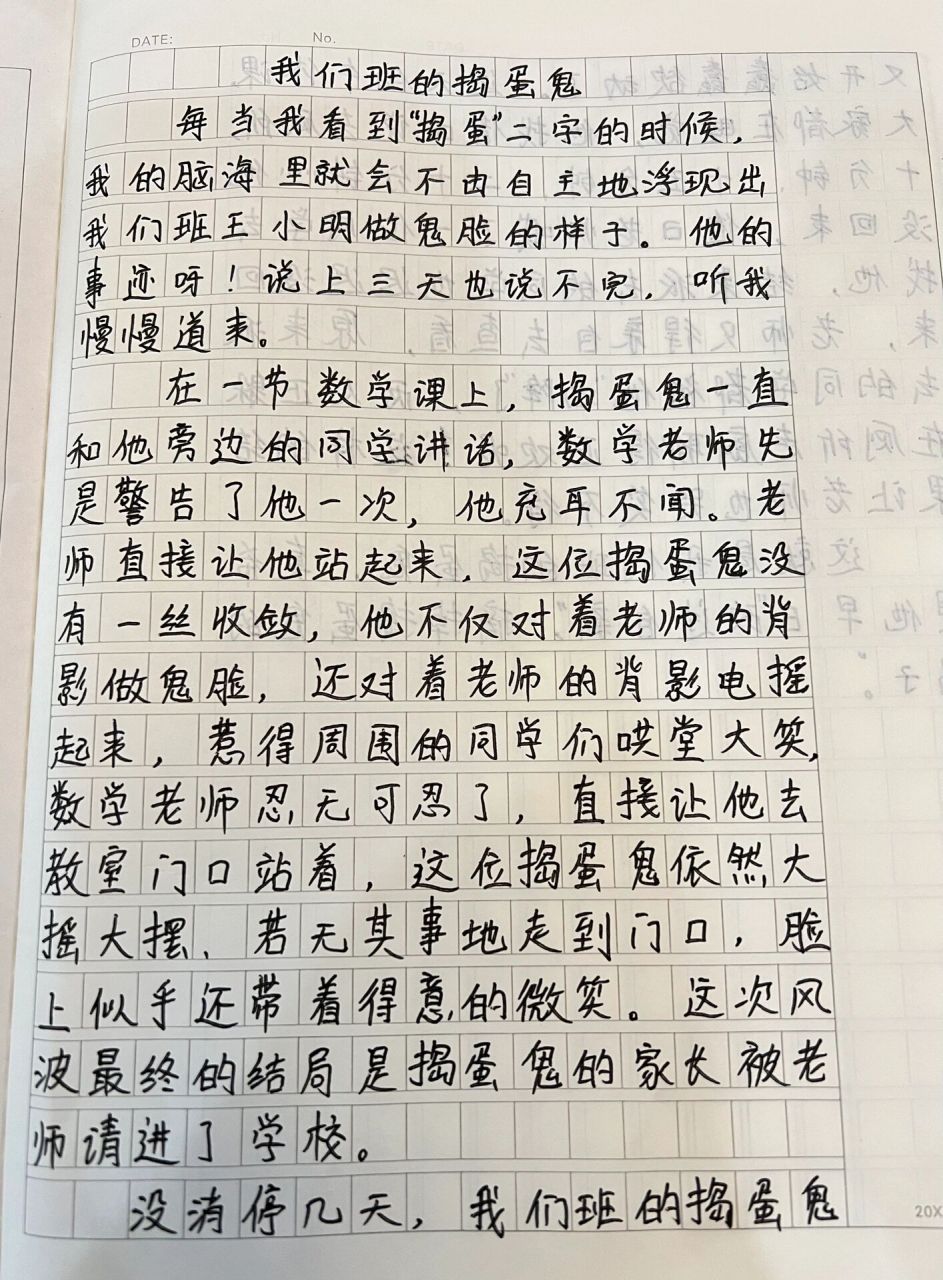 DATE: No.
我们班的捣蛋鬼
每当我看到"捣蛋"二字的时候,
我的脑海里就会不由自主地浮现出
我们班王小明做鬼脸的样子。他的
事迹呀!说上三天也说不完,听我
慢慢道来。
在一节数学课上,捣蛋鬼一直
和他旁边的同学讲话,数学老师先
是警告了他一次,他充耳不闻。老
师直接让他站起来,这位捣蛋鬼没
有一丝收敛,他不仅对着老师的背
影做鬼脸,还对着老师的背影电摇
起来,惹得周围的同学们哄堂大笑,
数学老师忍无可忍了,直接让他去
教室门口站着,这位捣蛋鬼依然大
摇大摆、若无其事地走到门口,脸
上似乎还带着得意的微笑。这次风
波最终的结局是捣蛋鬼的家长被老
师请进了学校。
没消停几天,我们班的捣蛋鬼
20X